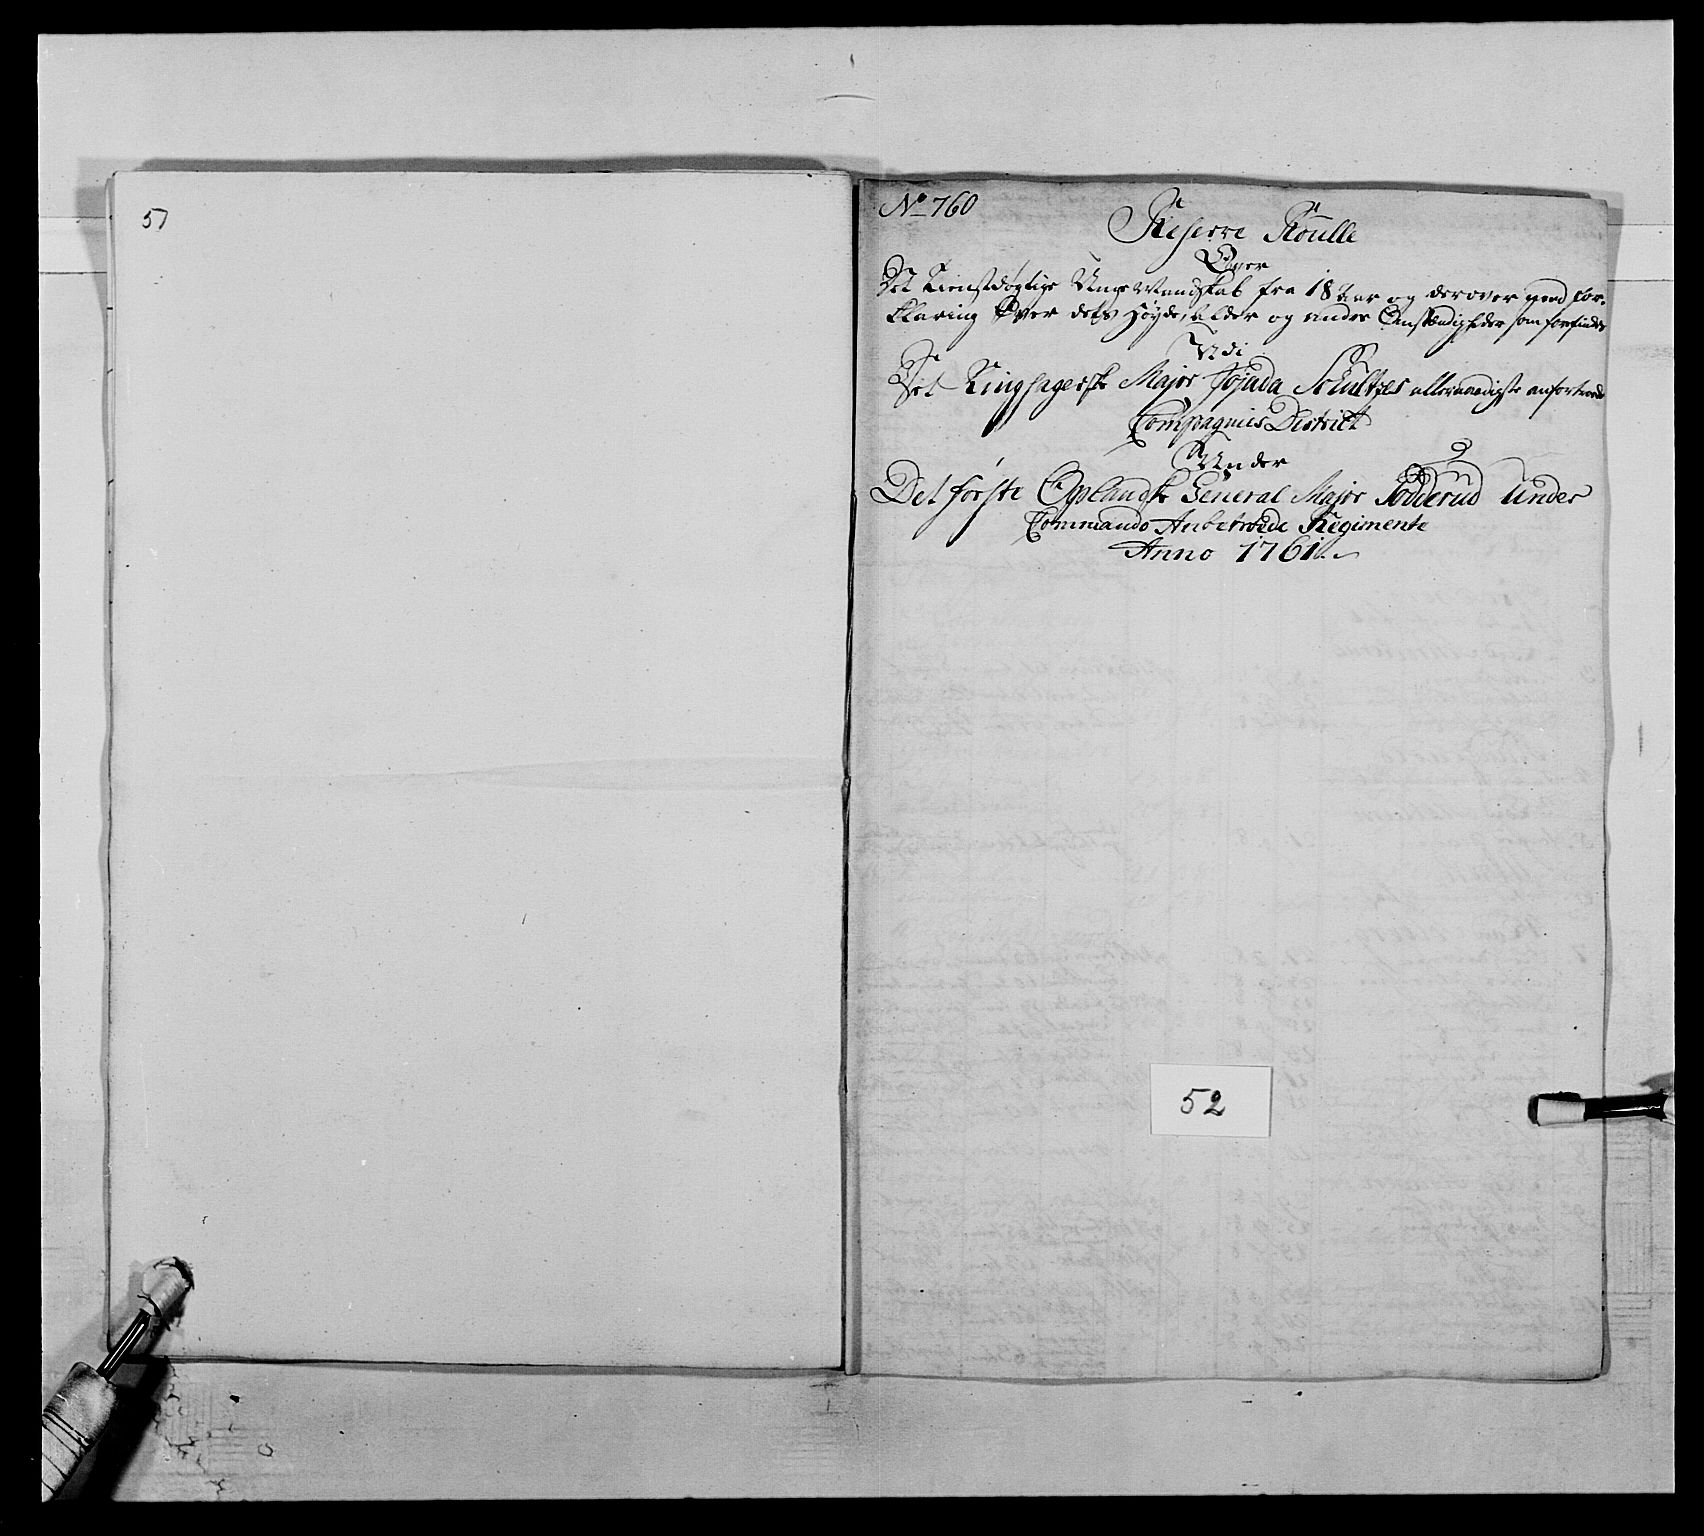 51
No 760
Reserve Roulle
Over
Det tienstdøgtige Unge Mandskab fra 18 Aar og derover med for-
klaring Over dets Høyde, Alder og andre Omstændigheder som forfindes
Udi
Det Ringsagerske Major Jojada Schultzes allernaadigste anfortroede
Compagnies District
Under
Det første Oplandske General Major Rodderud Under
Commando Anbetroede Regimente
Anno 1761.
52